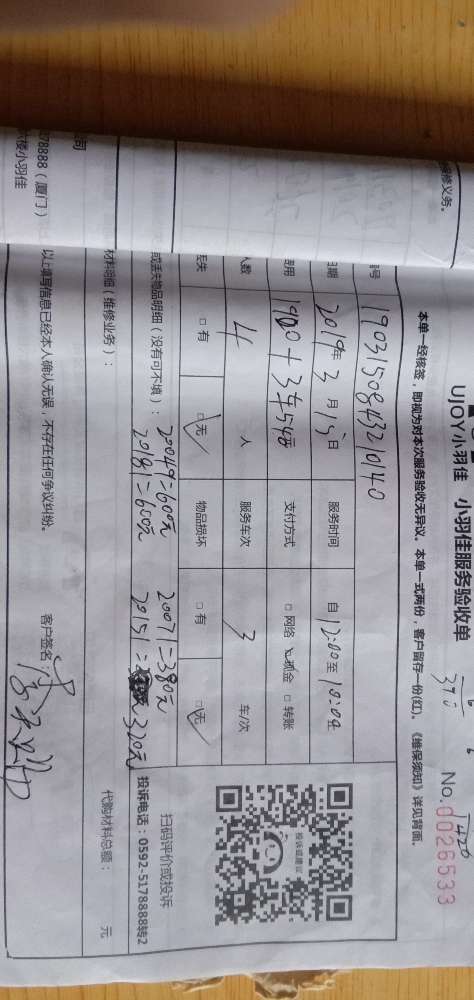 修义务。
UJOY小羽佳 小羽佳服务验收单
No.0026533
1420
370
本单一经核签，即视为对本次服务验收无异议。本单一式两份，客户留存一份(红)。《维保须知》详见背面。
190315084320140
日期 2019年3月15日 服务时间 自12:00至18:00
支付方式 □网络 ☑现金 □转账
人数 4 人 服务车次 3 车/次
丢失 □有 ☑无 物品损坏 □有 ☑无
或丢失物品明细（没有可不填）：
20049=600元 20071=380元
20181=600元 20151=320元
材料明细（维修业务）：
代购材料总额： 元
投诉或建议
扫码评价或投诉
投诉电话：0592-5178888转2
以上填写信息已经本人确认无误，不存在任何争议纠纷。
客户签名：
司
78888（厦门）
楼小羽佳